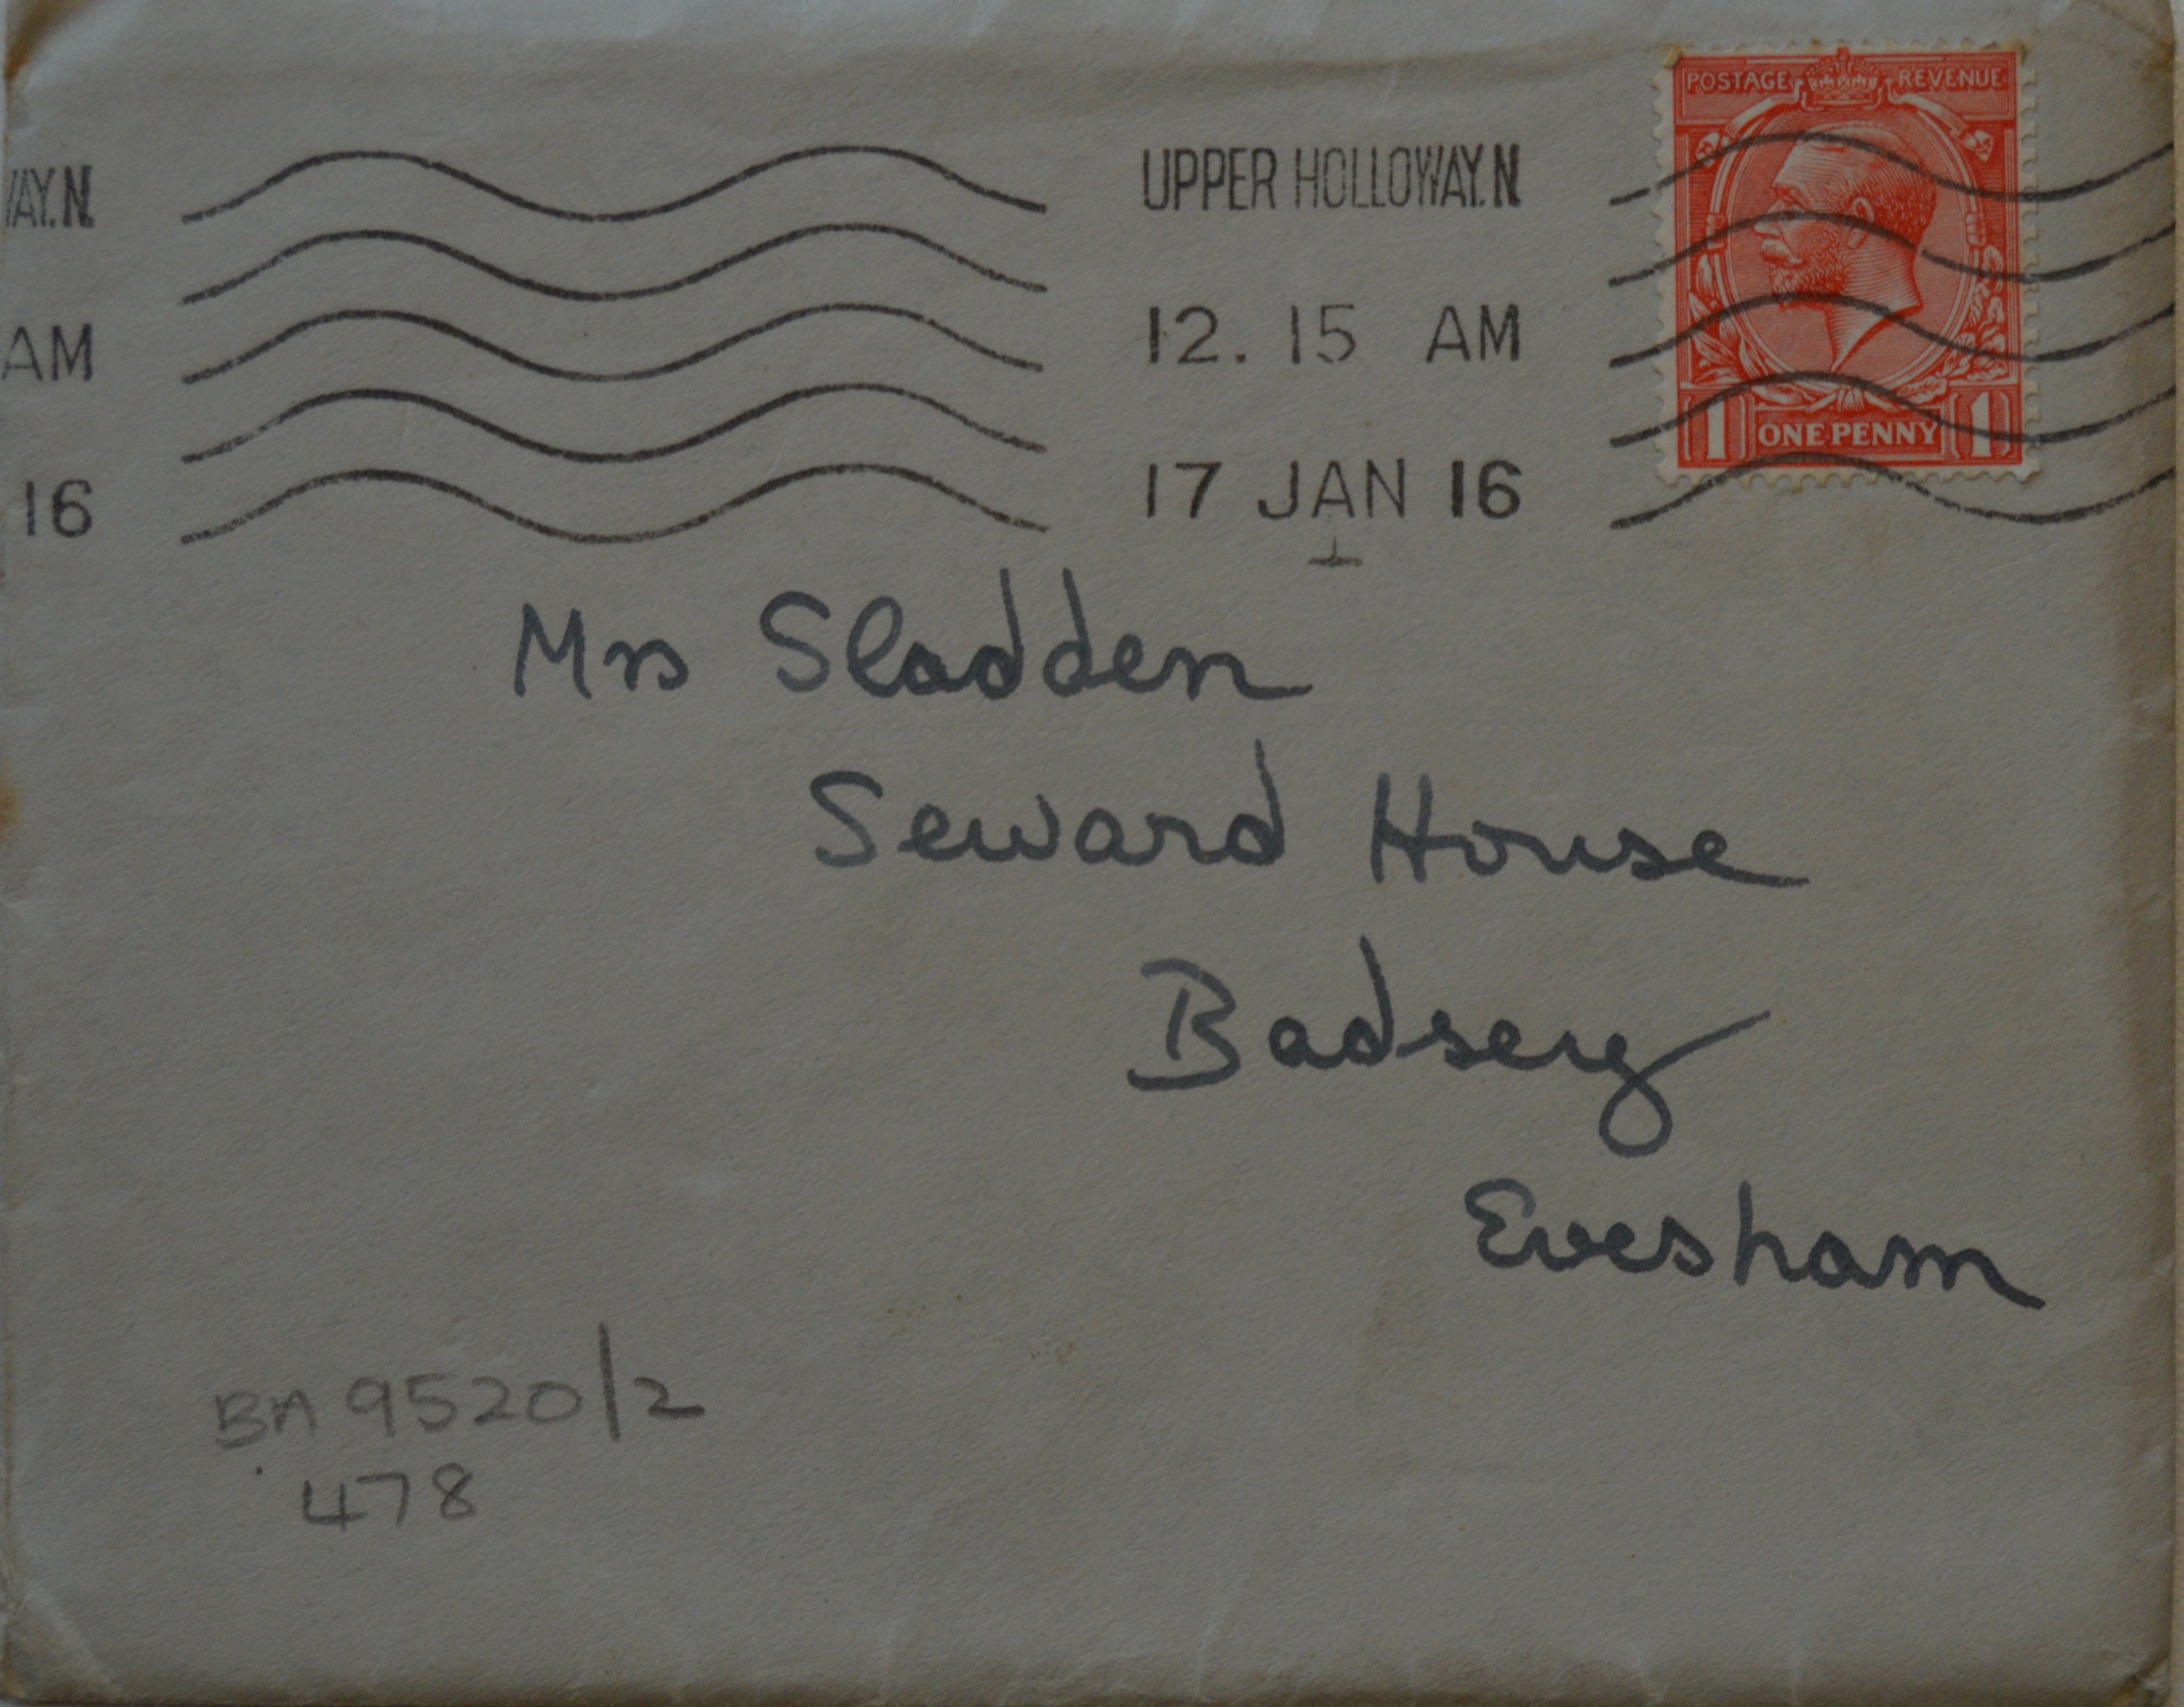 POSTAGE REVENUE
WAY.N. UPPER HOLLOWAY.N.
AM 12. 15 AM
16 17 JAN 16
1 ONE PENNY 1
Mrs Sladden
Seward House
Badsey
Evesham
BA 9520/2
478